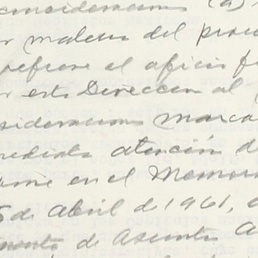 consideracion (a)
r materia del proce
refiere el oficio f
r esta Direccion al
sideraciones marca
mediata atención de
ome en el Memora
5 de Abril de 1961, d
mento de Asuntos A